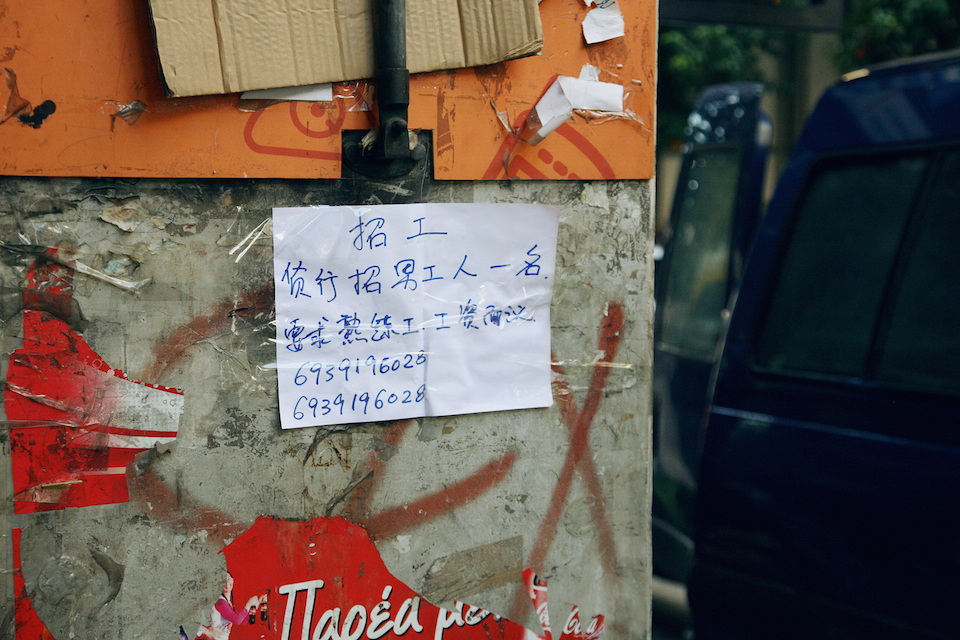 招工
货行招男工人一名.
要求熟练工工资面议.
6939196028
6939196028
Παρέα με